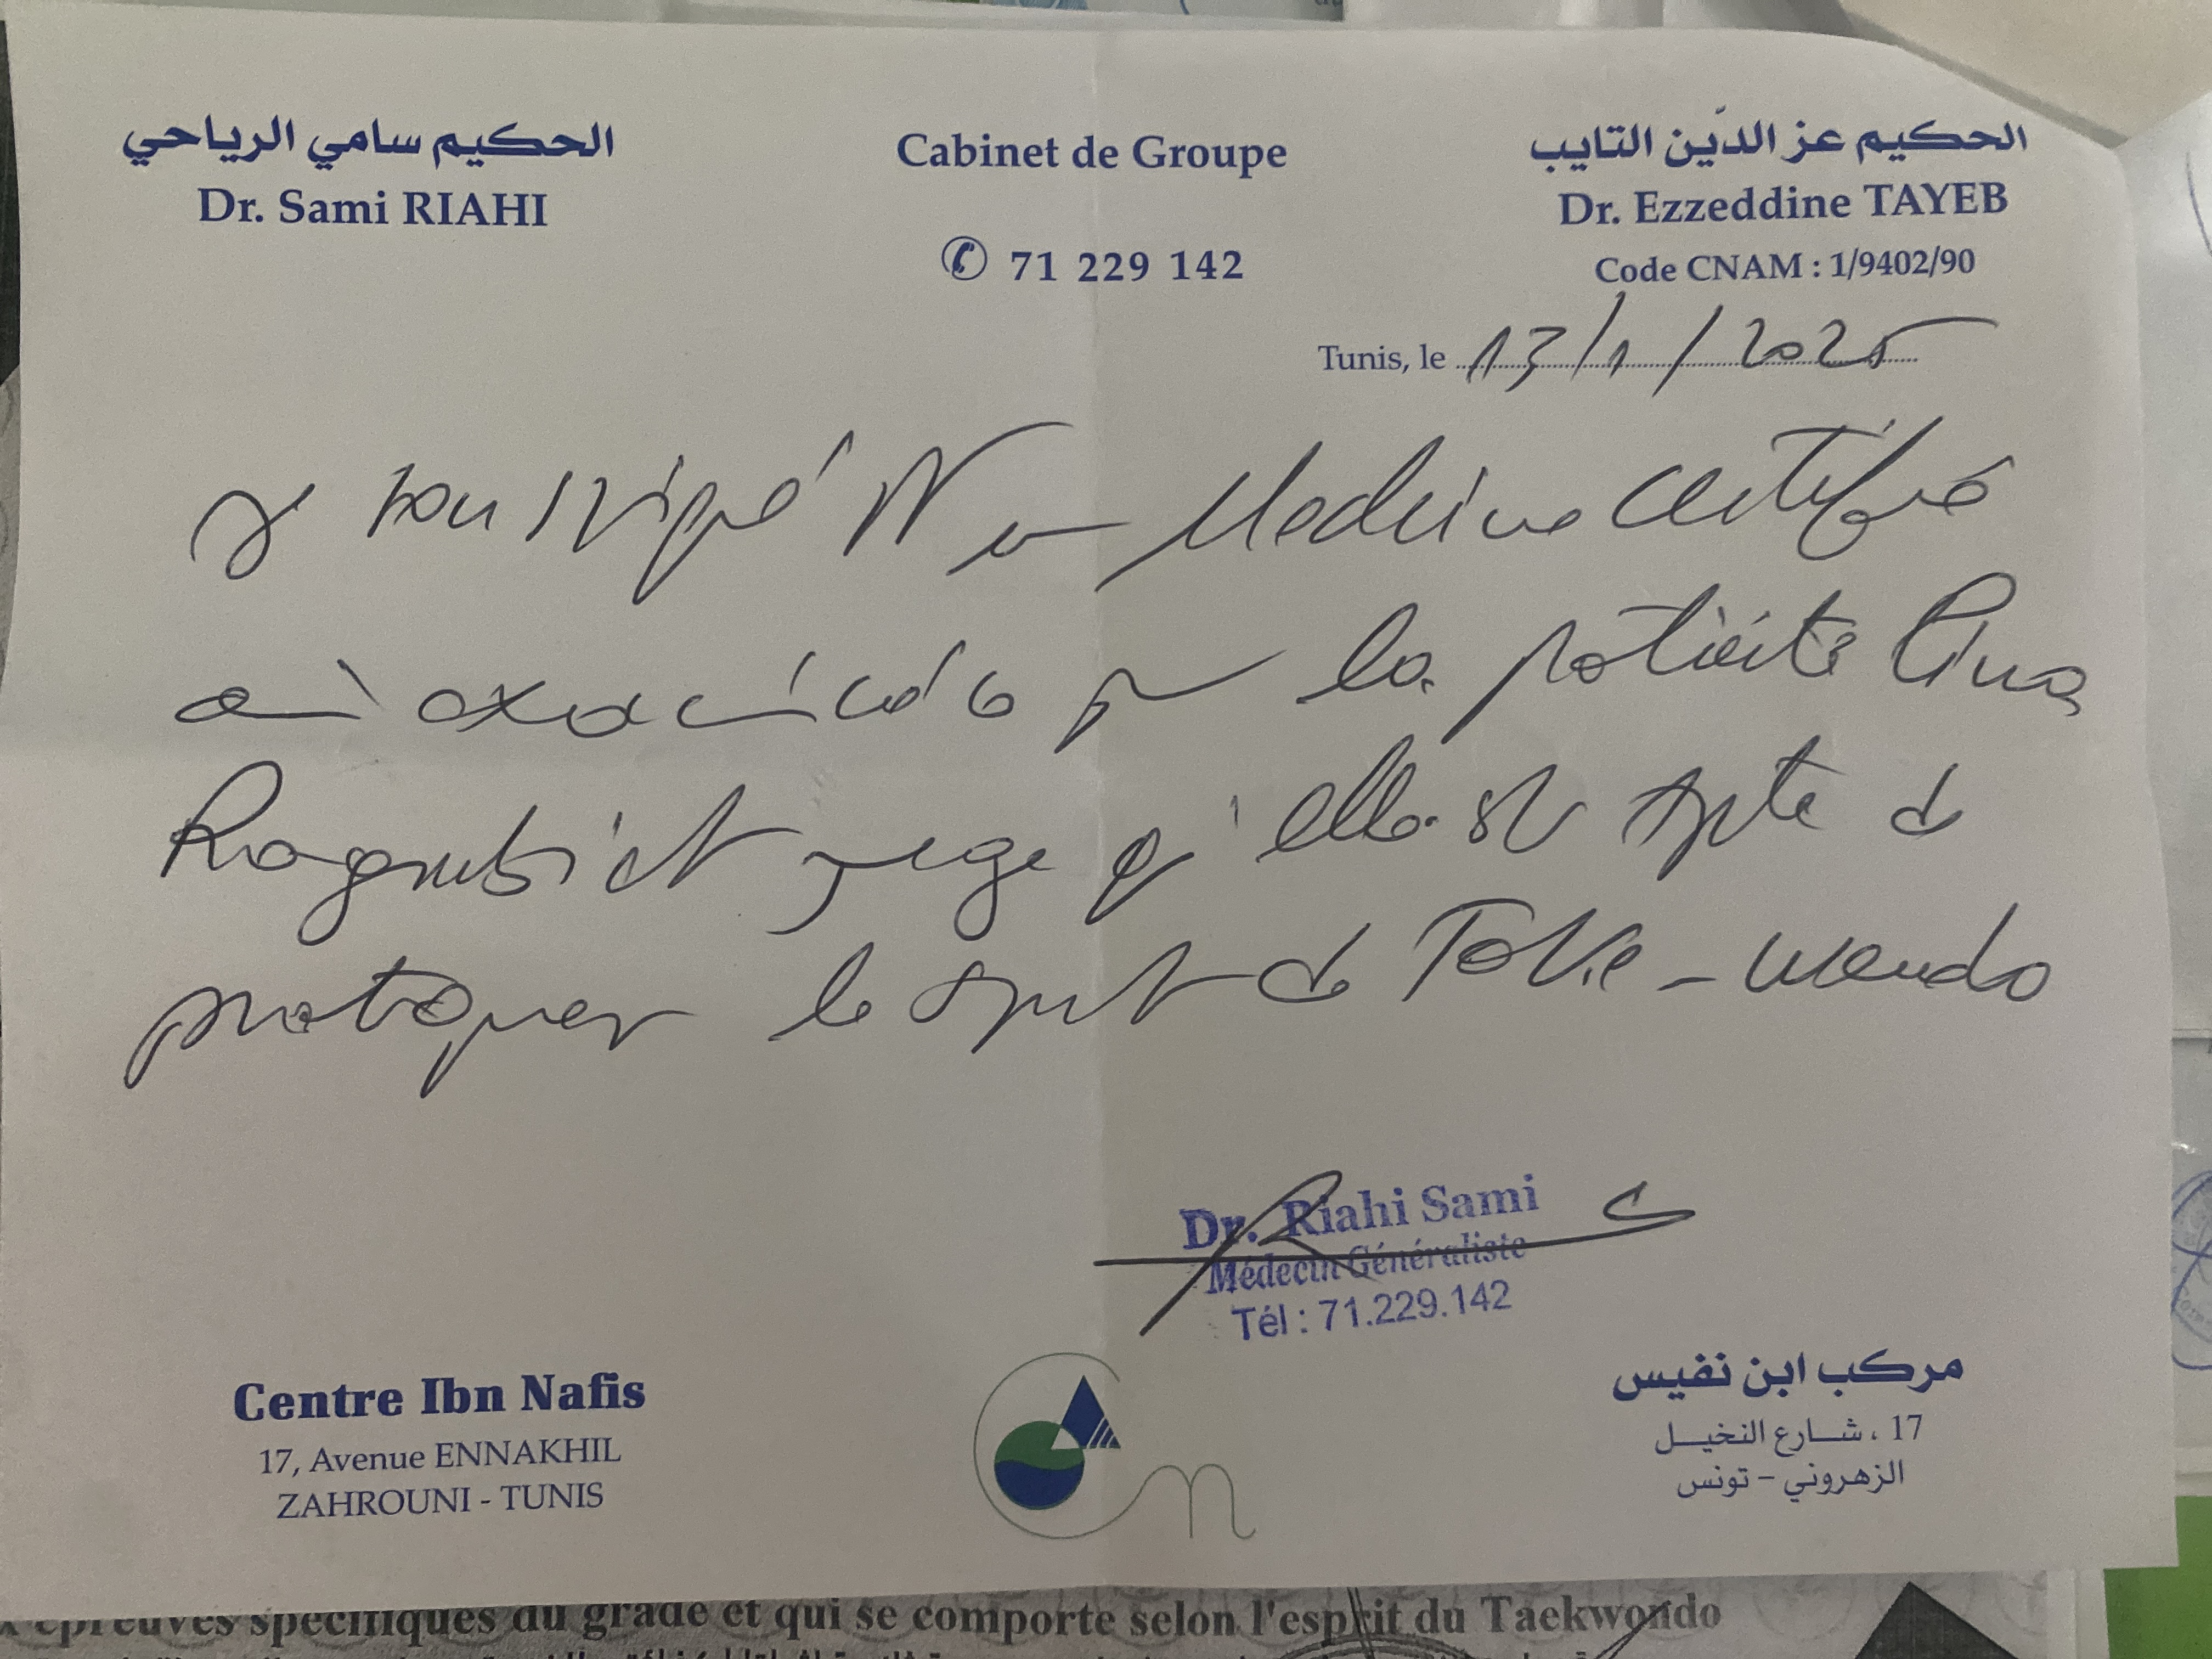 الحكيم سامي الرياحي
Dr. Sami RIAHI
Cabinet de Groupe
✆ 71 229 142
الحكيم عز الدّين التايب
Dr. Ezzeddine TAYEB
Code CNAM : 1/9402/90
Tunis, le 13/1/2025
Je soussigné Dr en Médecine certifie
avoir examiné ce jour la patiente
et juge qu'elle est apte de
pratiquer le sport de Taek-wendo
Dr. Riahi Sami
Médecin Généraliste
Tél : 71.229.142
Centre Ibn Nafis
17, Avenue ENNAKHIL
ZAHROUNI - TUNIS
مركب ابن نفيس
17 ، شارع النخيل
الزهروني - تونس
épreuves spécifiques du grade et qui se comporte selon l'esprit du Taekwondo